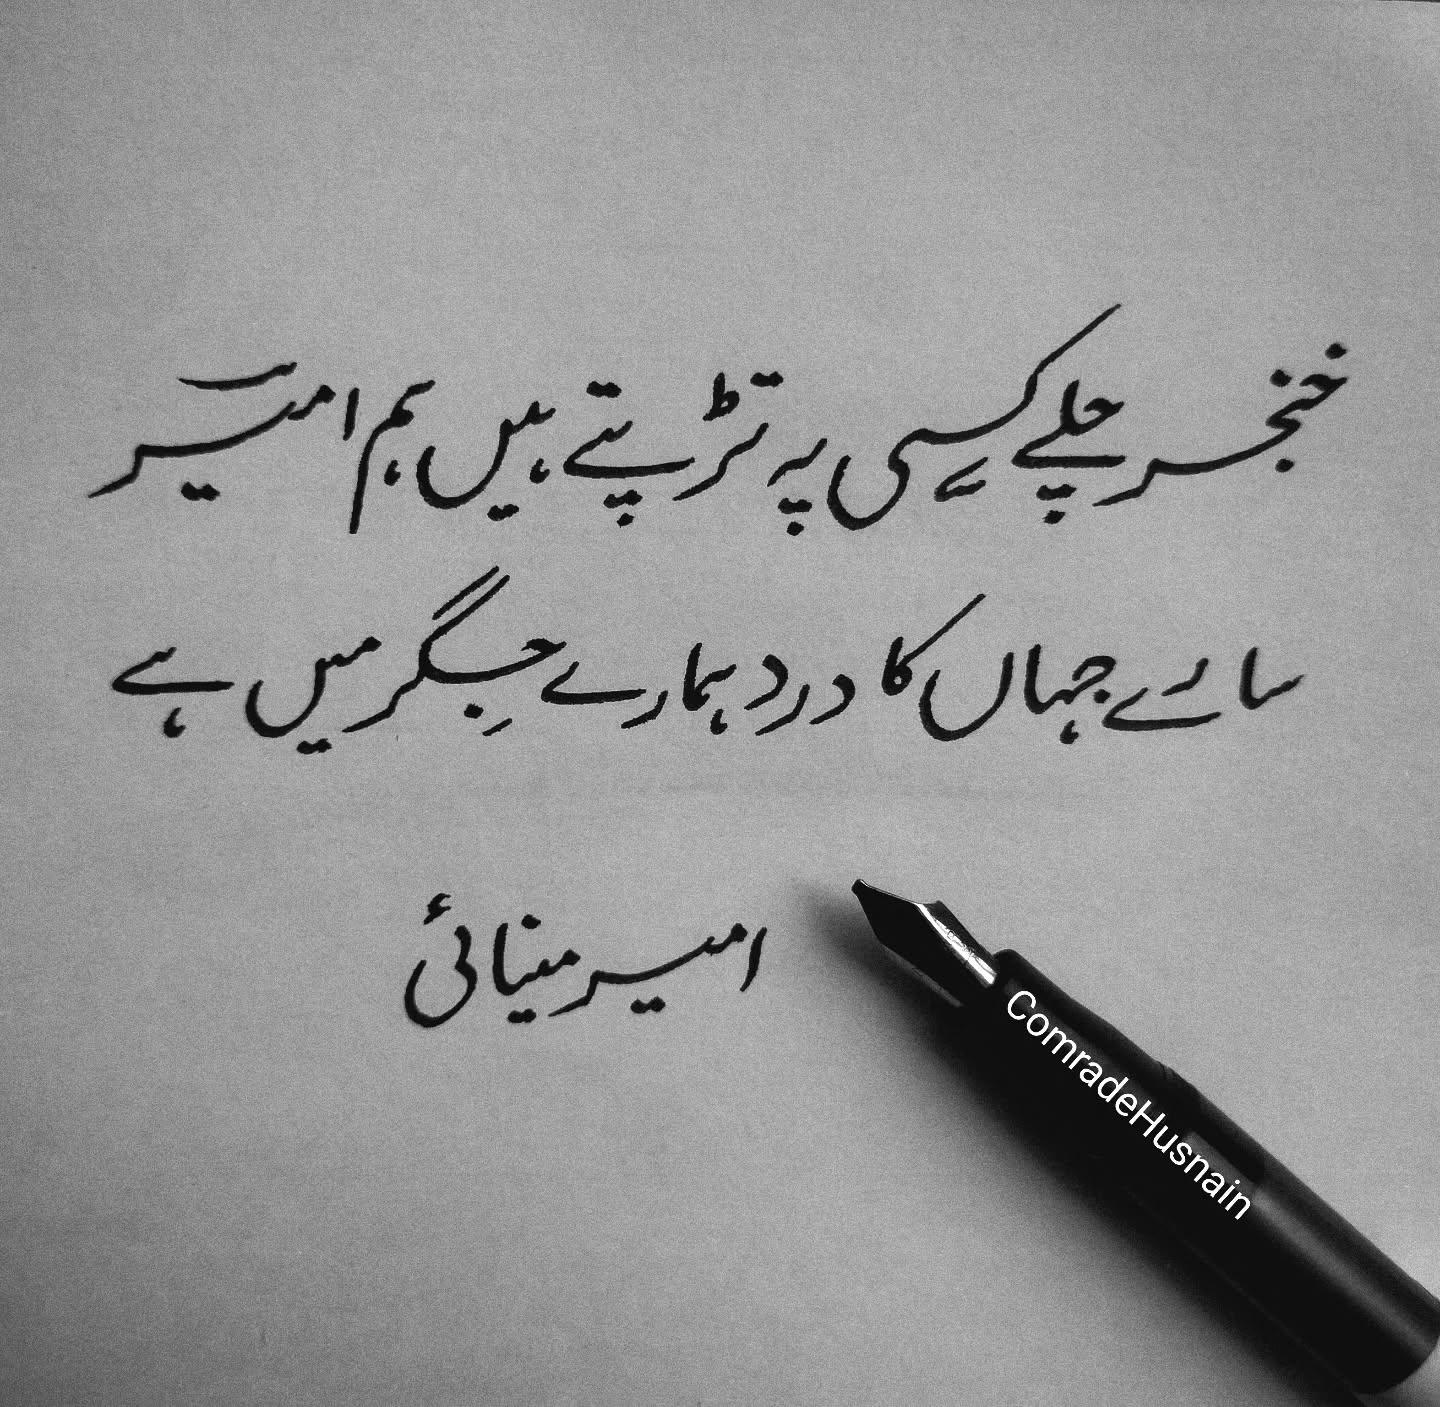 خنجر چلے کسی پہ تڑپتے ہیں ہم امیرؔ
سارے جہاں کا درد ہمارے جِگر میں ہے
امیر مینائی
ComradeHusnain